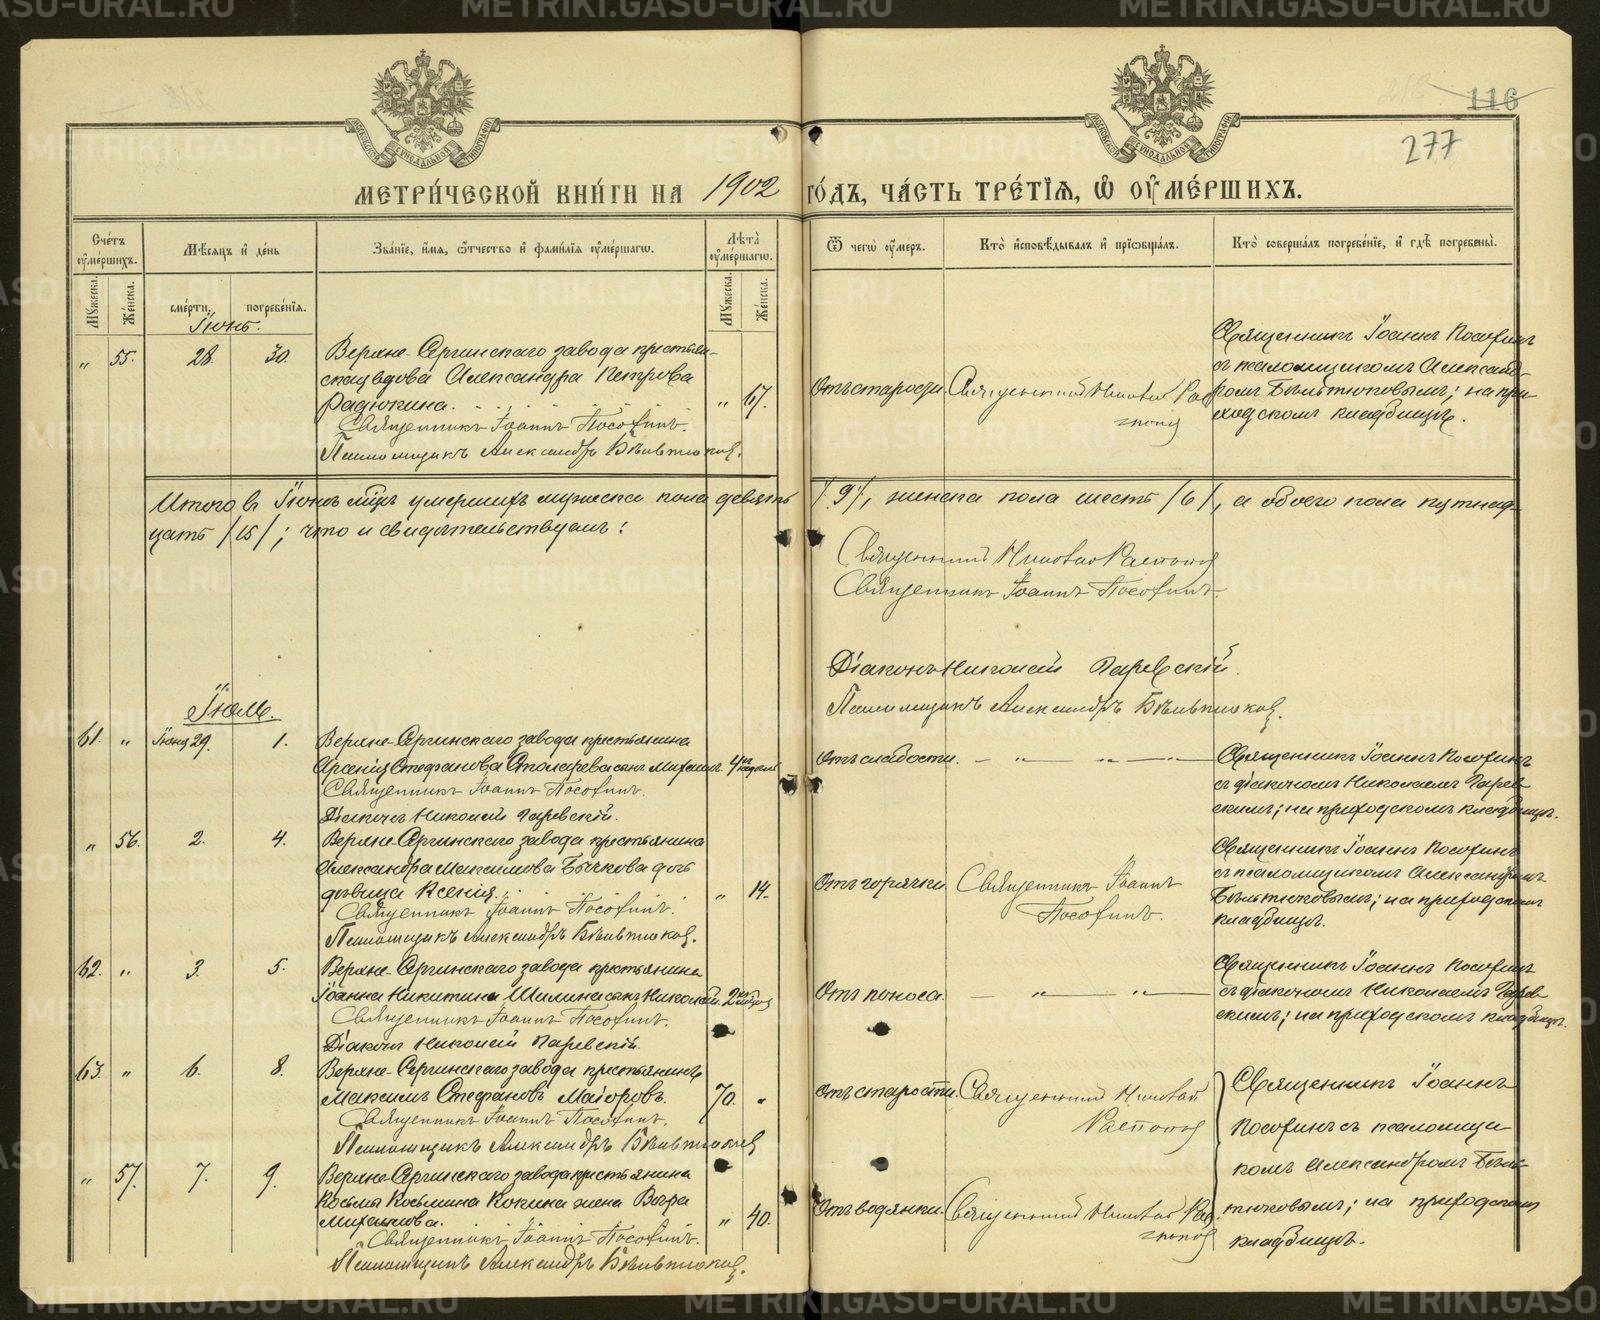 116
277
МЕТРИ́ЧЕСКОЙ КНИ́ГИ НА 1902 ГО́ДЪ, ЧА́СТЬ ТРЕ́ТІЯ, Ѡ҆ ОУ҆МЕ́РШИХЪ.
Сче́тъ оу҆ме́ршихъ.
Мѣ́сяцъ и҆ де́нь
Зва́ніе, и҆́мя, ѻ҆́тчество и҆ фами́лія оу҆ме́ршагѡ.
Лѣ́та оу҆ме́ршагѡ.
Ѿ чегѡ̀ оу҆́меръ.
Кто̀ и҆сповѣ́дывалъ и҆ прїѡбща́лъ.
Кто̀ соверша́лъ погребе́нїе, и҆ гдѣ̀ погребены̀.
Мꙋ́жеска. Же́нска.
сме́рти. погребе́нїя.
Мꙋ́жеска. Же́нска.
Іюнь.
„ 55. 28. 30.
Верхне-Сергинскаго завода крестьян-
ская вдова Александра Петрова
Радюкина.
Священникъ Іоаннъ Посохинъ.
Псаломщикъ Александръ
„ 67.
Отъ старости.
Священникъ Николай
Священникъ Іоаннъ Посохинъ
съ псаломщикомъ Александ-
ромъ на при-
ходскомъ кладбищѣ.
Итого въ Іюнѣ мцѣ умершихъ мужеска пола девять /9/, женска пола шесть /6/, а обоего пола пятнад-
цать /15/; что и свидѣтельствуемъ:
Священникъ Николай
Священникъ Іоаннъ Посохинъ.
Діаконъ Николай Гаревскій.
Псаломщикъ Александръ
Іюль.
61. „ Іюня 29. 1.
Верхне-Сергинскаго завода крестьянина
Арсенія Стефанова Столарева сынъ Михаилъ.
Священникъ Іоаннъ Посохинъ.
Діаконъ Николай Гаревскій.
Отъ слабости. — „ — „ —
Священникъ Іоаннъ Посохинъ
съ діакономъ Николаемъ Гарев-
скимъ; на приходскомъ кладбищѣ.
„ 56. 2. 4.
Верхне-Сергинскаго завода крестьянина
Александра Максимова Бычкова дочь
дѣвица Ксенія.
Священникъ Іоаннъ Посохинъ.
Псаломщикъ Александръ
„ 14.
Отъ горячки.
Священникъ Іоаннъ
Посохинъ.
Священникъ Іоаннъ Посохинъ
съ псаломщикомъ Александромъ
на приходскомъ
кладбищѣ.
62. „ 3. 5.
Верхне-Сергинскаго завода крестьянина
Іоанна Никитина Шилина сынъ Николай.
Священникъ Іоаннъ Посохинъ.
Діаконъ Николай Гаревскій.
Отъ поноса. — „ — „ —
Священникъ Іоаннъ Посохинъ
съ діакономъ Николаемъ Гарев-
скимъ; на приходскомъ кладбищѣ.
63. „ 6. 8.
Верхне-Сергинскаго завода крестьянинъ
Максимъ Стефановъ Маіоровъ.
Священникъ Іоаннъ Посохинъ.
Псаломщикъ Александръ
70. „
Отъ старости.
Священникъ Николай
Священникъ Іоаннъ
Посохинъ съ псаломщи-
комъ Александромъ
на приходскомъ
кладбищѣ.
„ 57. 7. 9.
Верхне-Сергинскаго завода крестьянина
Косьмы Косьмина Кокина жена Вѣра
Священникъ Іоаннъ Посохинъ.
Псаломщикъ Александръ
„ 40.
Отъ водянки.
Священникъ Николай
METRIKI.GASO-URAL.RU